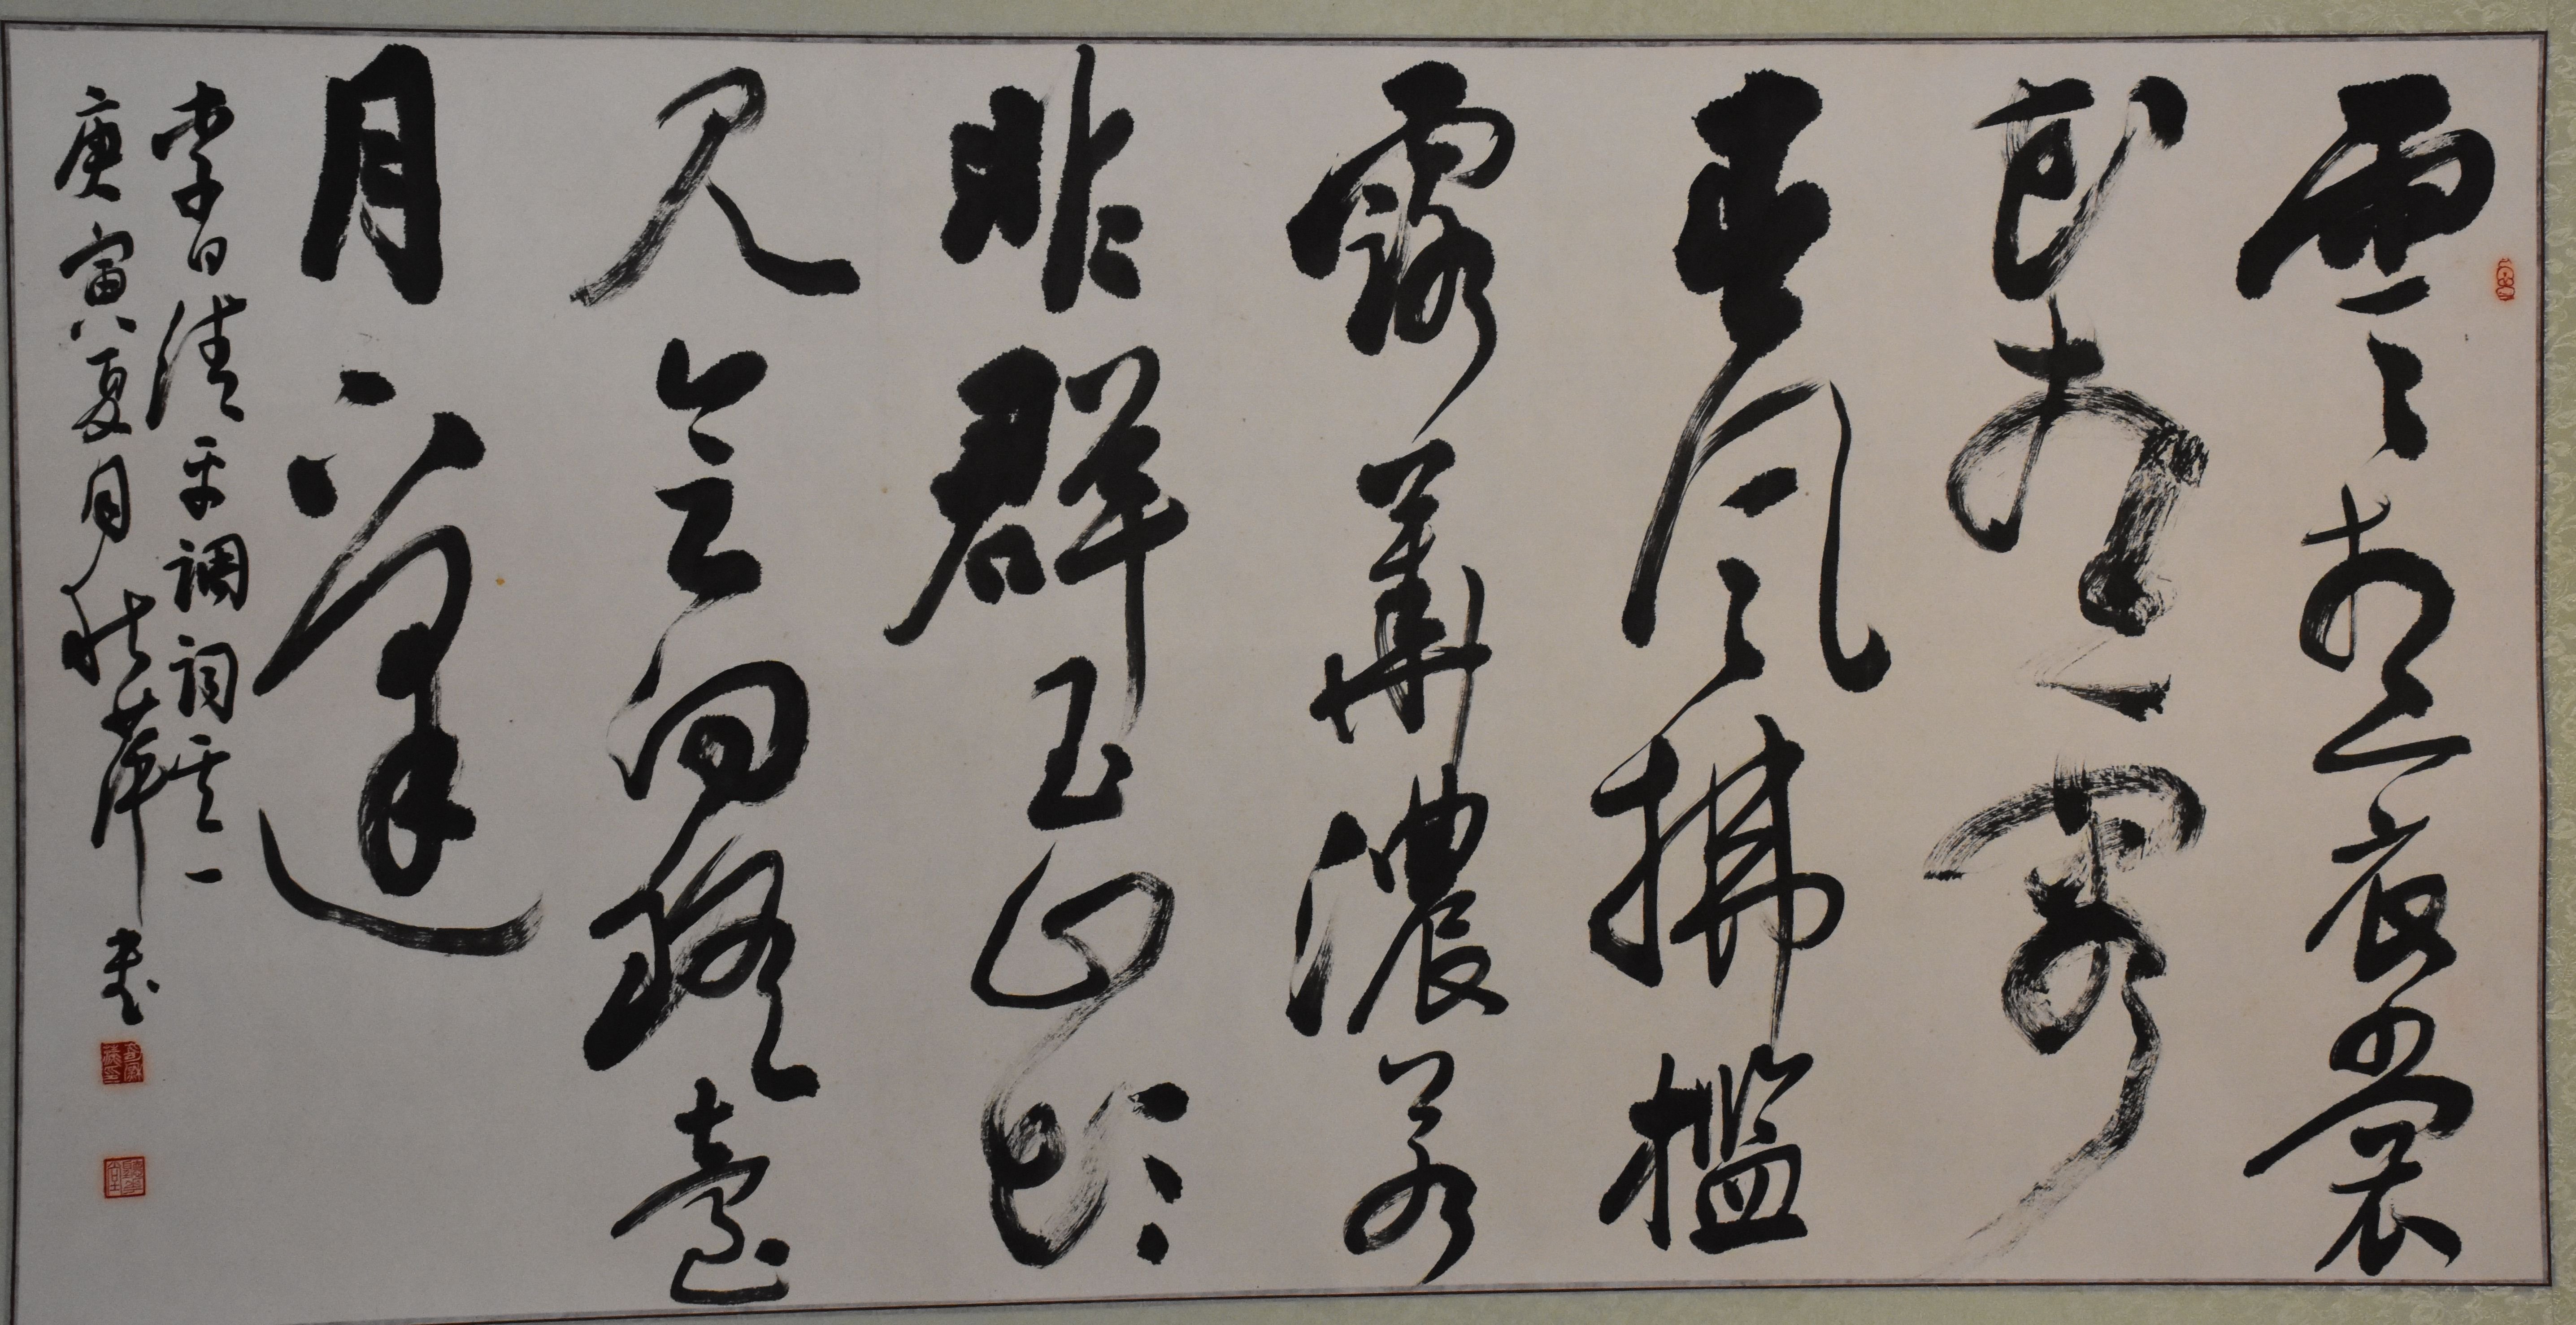 雲想衣裳
花想容
春風拂檻
露華濃若
非群玉山頭
見會向瑤臺
月下逢
李白清平調詞其一
庚寅夏月秋書